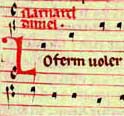 Narnard
diniel.
Lo ferm uoler